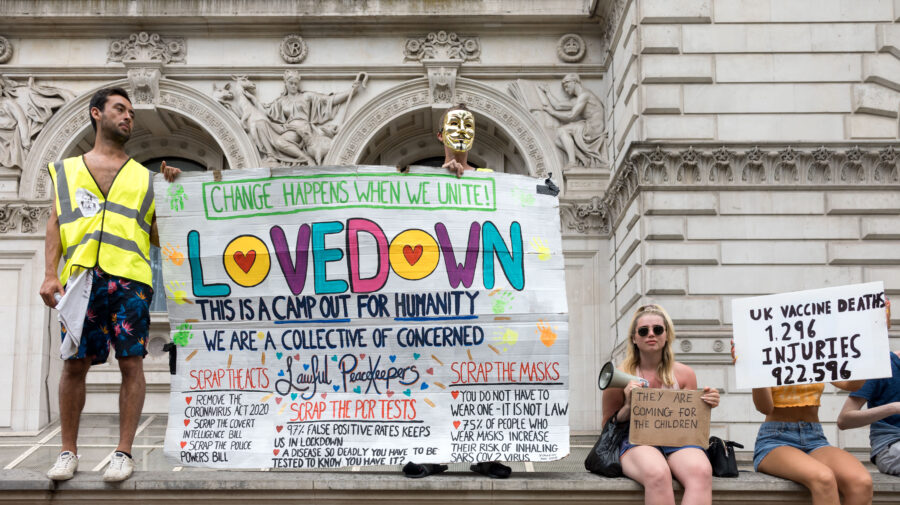 CHANGE HAPPENS WHEN WE UNITE!
LOVEDOWN
THIS IS A CAMP OUT FOR HUMANITY
WE ARE A COLLECTIVE OF CONCERNED
Lawful PeaceKeepers
SCRAP THE ACTS
REMOVE THE
CORONAVIRUS ACT 2020
SCRAP THE COVERT
INTELLIGENCE BILL
SCRAP THE POLICE
POWERS BILL
SCRAP THE PCR TESTS
97% FALSE POSITIVE RATES KEEPS
US IN LOCKDOWN
A DISEASE SO DEADLY YOU HAVE TO BE
TESTED TO KNOW YOU HAVE IT?
SCRAP THE MASKS
YOU DO NOT HAVE TO
WEAR ONE - IT IS NOT LAW
75% OF PEOPLE WHO
WEAR MASKS INCREASE
THEIR RISK OF INHALING
SARS COV 2 VIRUS
THEY ARE
COMING FOR THE
CHILDREN
UK VACCINE DEATHS
1,296
INJURIES
922,596